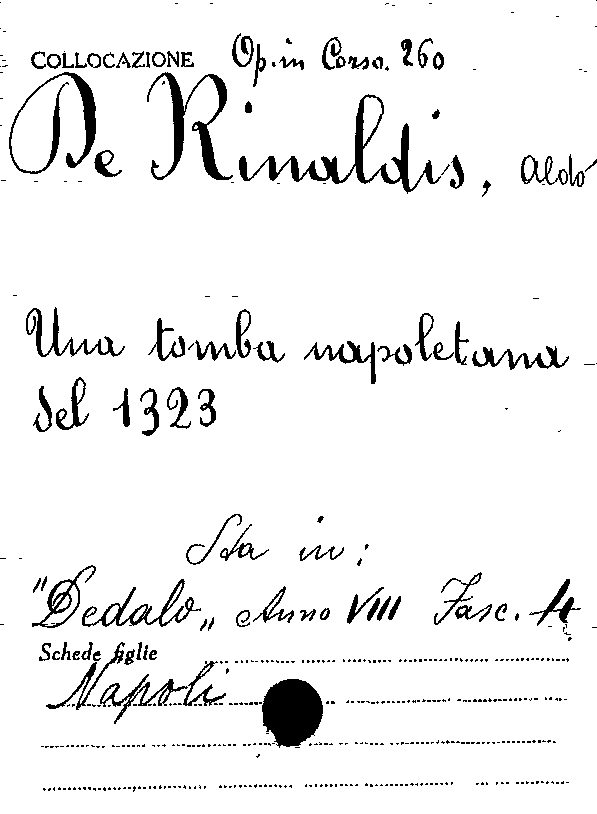 COLLOCAZIONE Op. in Corso. 260
De Rinaldis, Aldo
Una tomba napoletana
del 1323
Sta in:
"Dedalo„ Anno VIII Fasc. 4
Schede figlie
Napoli